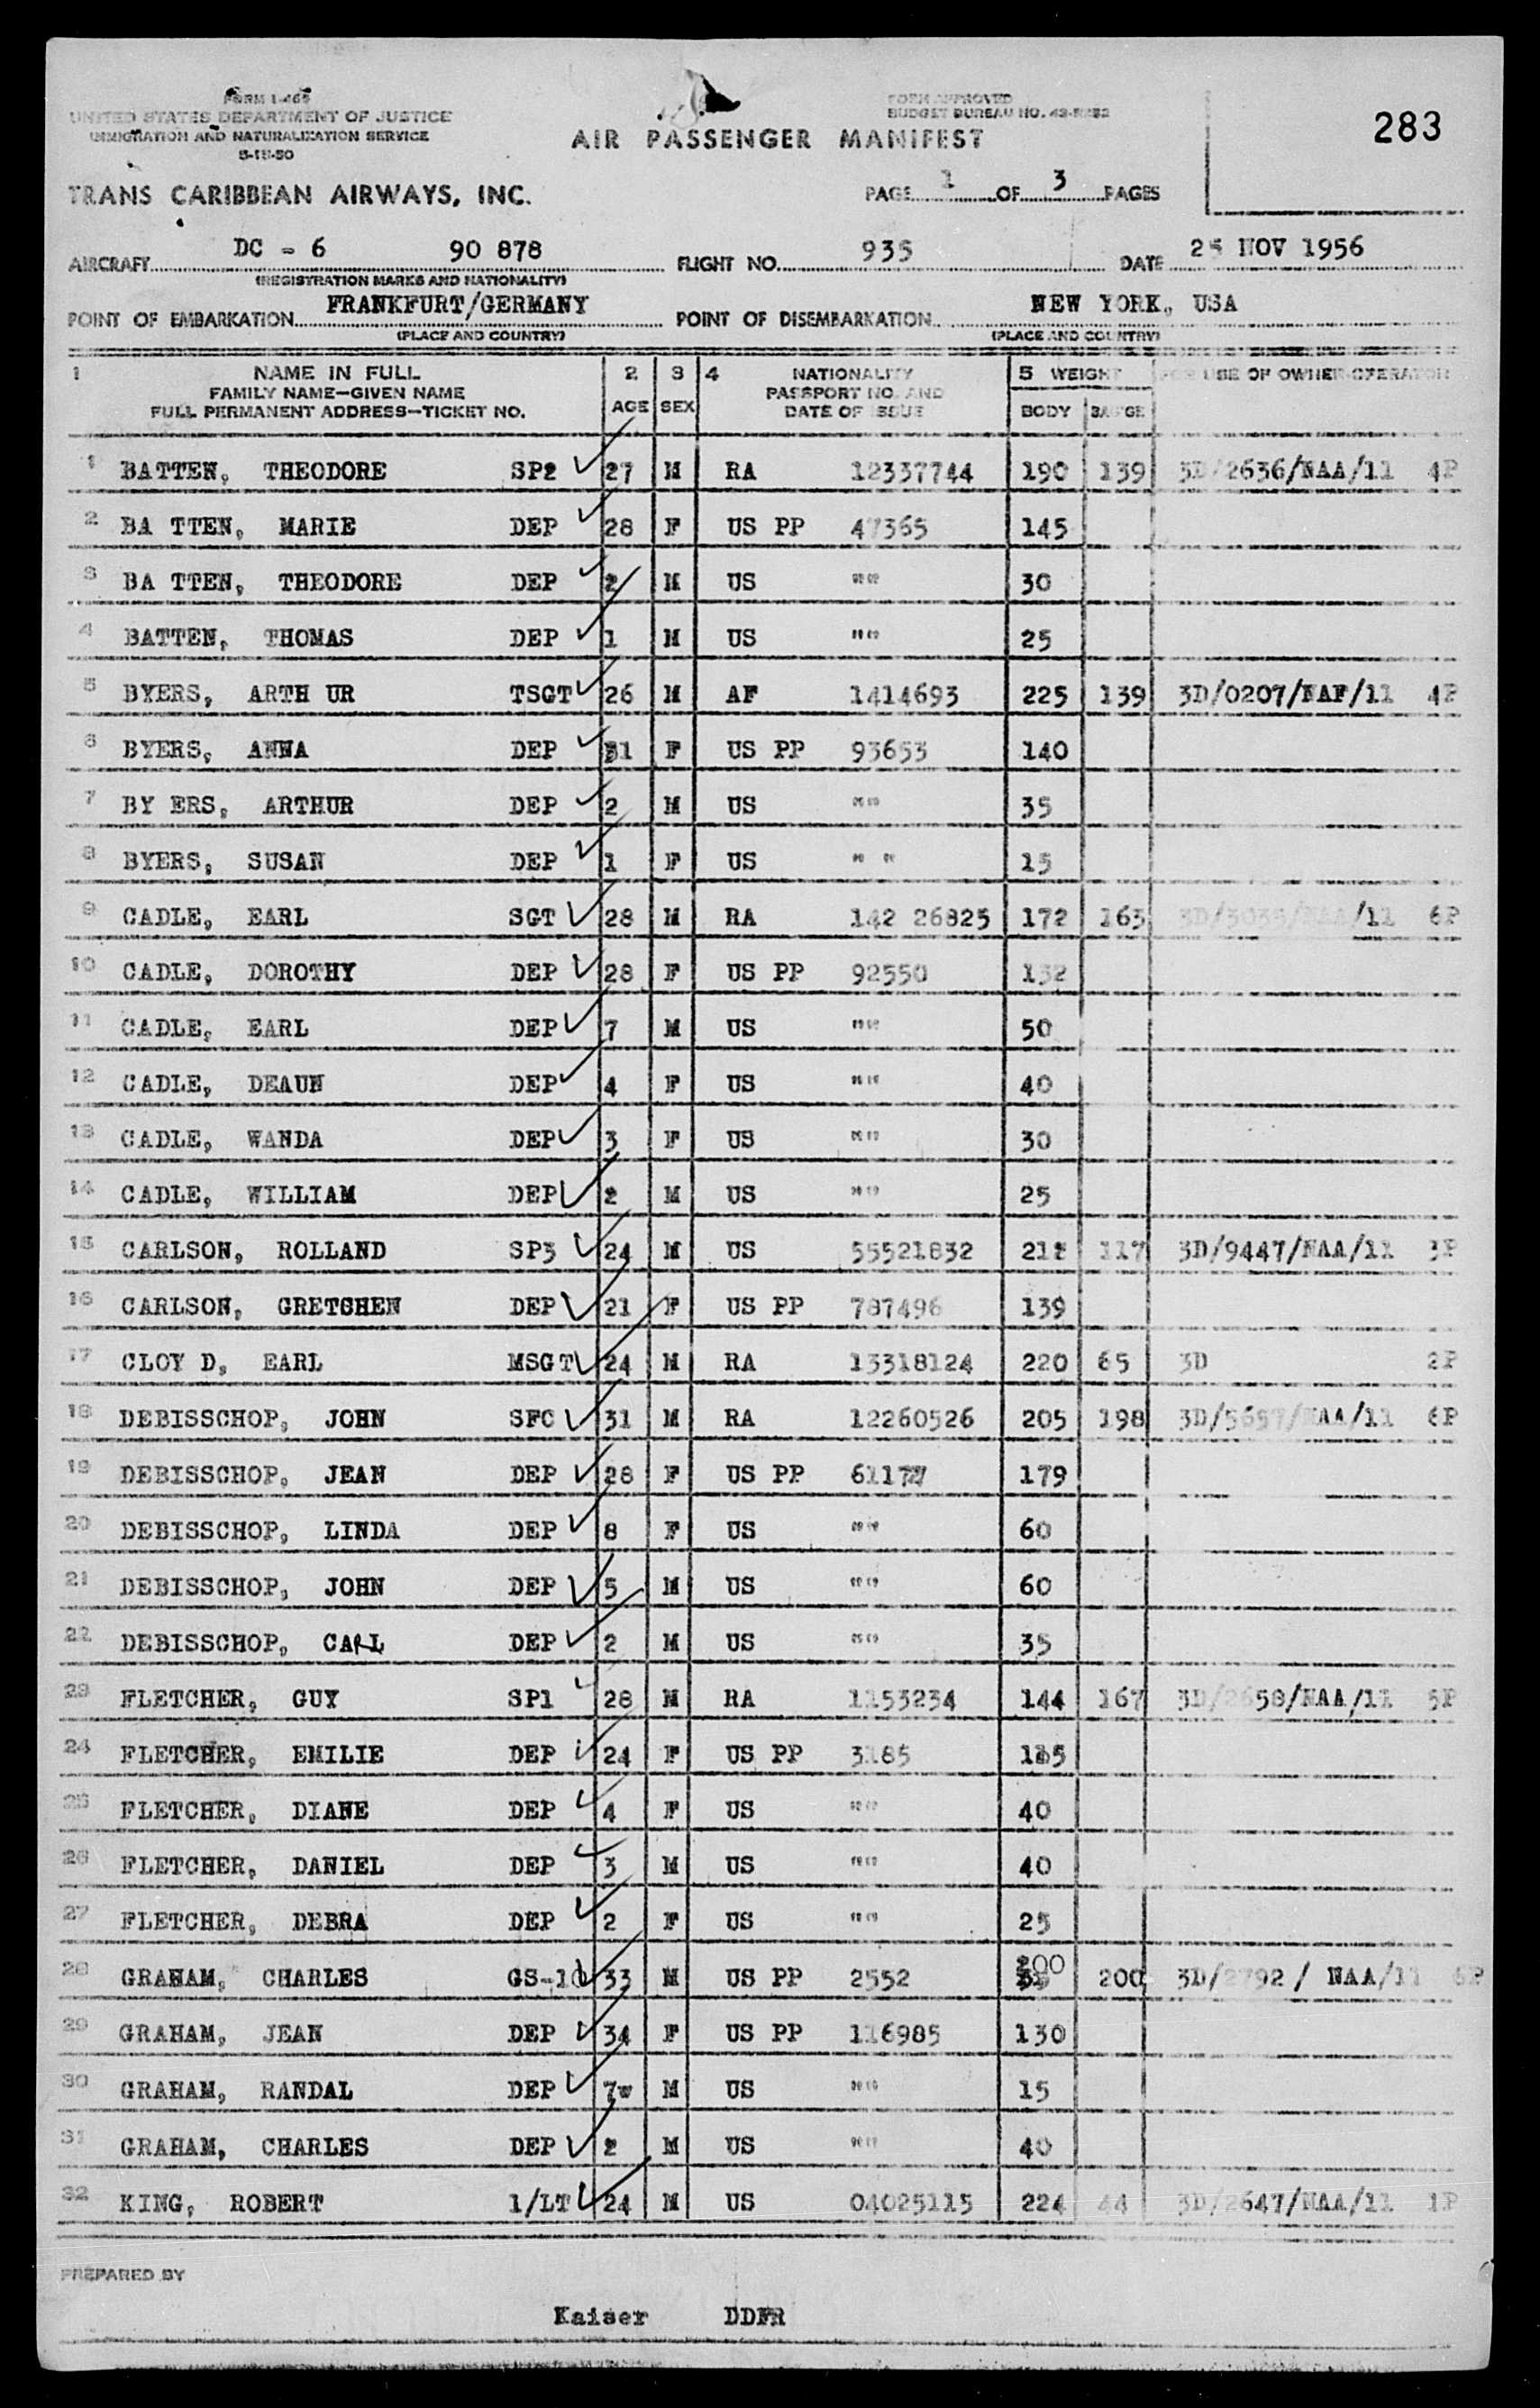 FORM I-466
UNITED STATES DEPARTMENT OF JUSTICE
IMMIGRATION AND NATURALIZATION SERVICE
5-15-50
FORM APPROVED
BUDGET BUREAU NO.
283
AIR PASSENGER MANIFEST
TRANS CARIBBEAN AIRWAYS, INC.
PAGE 1 OF 3 PAGES
AIRCRAFT DC - 6 90 878 FLIGHT NO. 935 DATE 25 NOV 1956
(REGISTRATION MARKS AND NATIONALITY)
POINT OF EMBARKATION FRANKFURT/GERMANY POINT OF DISEMBARKATION NEW YORK, USA
(PLACE AND COUNTRY) (PLACE AND COUNTRY)
1 NAME IN FULL 2 3 4 NATIONALITY 5 WEIGHT FOR USE OF OWNER-OPERATOR
FAMILY NAME—GIVEN NAME AGE SEX PASSPORT NO. AND BODY BAGGE
FULL PERMANENT ADDRESS—TICKET NO. DATE OF ISSUE
1 BATTEN, THEODORE SP2 27 M RA 12337744 190 139 3D/2636/NAA/11 4P
2 BA TTEN, MARIE DEP 28 F US PP 47365 145
3 BA TTEN, THEODORE DEP 2 M US "" 30
4 BATTEN, THOMAS DEP 1 M US "" 25
5 BYERS, ARTH UR TSGT 26 M AF 1414693 225 139 3D/0207/NAF/11 4P
6 BYERS, ANNA DEP 31 F US PP 93653 140
7 BY ERS, ARTHUR DEP 2 M US "" 35
8 BYERS, SUSAN DEP 1 F US " " 15
9 CADLE, EARL SGT 28 M RA 142 26825 172 163 3D/3035/NAA/11 6P
10 CADLE, DOROTHY DEP 28 F US PP 92550 132
11 CADLE, EARL DEP 7 M US "" 50
12 CADLE, DEAUN DEP 4 F US "" 40
13 CADLE, WANDA DEP 3 F US "" 30
14 CADLE, WILLIAM DEP 2 M US "" 25
15 CARLSON, ROLLAND SP3 24 M US 55521832 117 3D/9447/NAA/11 3P
16 CARLSON, GRETCHEN DEP 21 F US PP 787496 139
17 CLOY D, EARL MSGT 24 M RA 13318124 220 65 3D 2P
18 DEBISSCHOP, JOHN SFC 31 M RA 12260526 205 198 3D/5657/NAA/11 6P
19 DEBISSCHOP, JEAN DEP 28 F US PP 179
20 DEBISSCHOP, LINDA DEP 8 F US "" 60
21 DEBISSCHOP, JOHN DEP 5 M US "" 60
22 DEBISSCHOP, CARL DEP 2 M US "" 35
23 FLETCHER, GUY SP1 28 M RA 1153234 144 167 3D/2658/NAA/11 5P
24 FLETCHER, EMILIE DEP 24 F US PP 3185
25 FLETCHER, DIANE DEP 4 F US "" 40
26 FLETCHER, DANIEL DEP 3 M US "" 40
27 FLETCHER, DEBRA DEP 2 F US "" 25
28 GRAHAM, CHARLES GS-10 33 M US PP 2552 200 200 3D/2792 / NAA/11 6P
29 GRAHAM, JEAN DEP 34 F US PP 116985 130
30 GRAHAM, RANDAL DEP 7w M US "" 15
31 GRAHAM, CHARLES DEP 2 M US "" 40
32 KING, ROBERT 1/LT 24 M US 04025115 224 44 3D/2647/NAA/11 1P
PREPARED BY
Kaiser DDFR